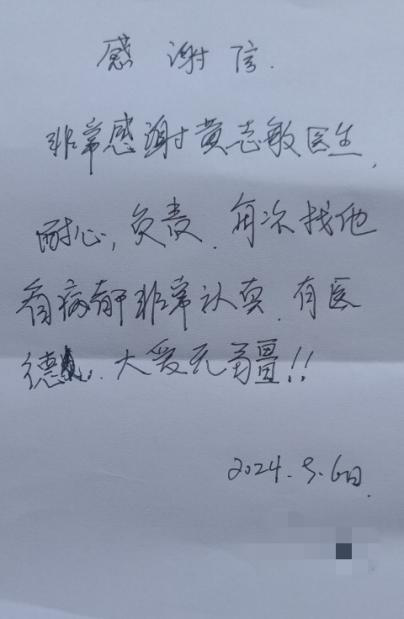 感谢信.
非常感谢黄志敏医生,
耐心,负责.每次找他
看病都非常认真.有医
德.大爱无疆!!
2024.5.6日.